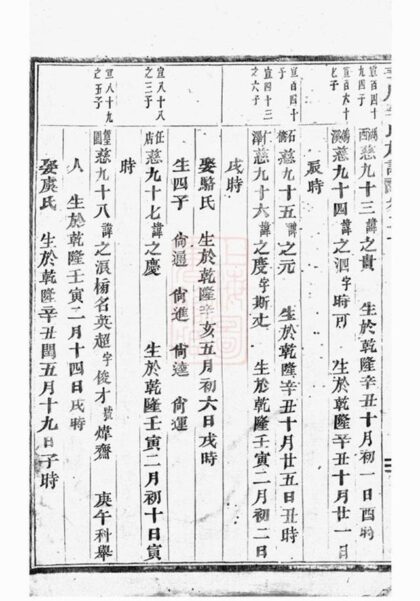 宣百四十
九四子
西慈九十三諱之貴　生於乾隆辛丑十月初一日酉時
宣百六十
七子
溪慈九十四諱之泗字時可　生於乾隆辛丑十月廿一日
辰時
宣百四十
子
石橋慈九十五諱之元　生於乾隆辛丑十月廿五日丑時
宣四十三
之六子
慈九十六諱之度字斯　生於乾隆壬寅二月初二日
戌時
娶駱氏　生於乾隆辛亥五月初六日戌時
生四子　尚選　尚進　尚遠　尚運
宣八十八
之三子
任店慈九十七諱之慶　生於乾隆壬寅二月初十日寅
時
宣八十九
之五子
園慈九十八諱之滇榜名英超字俊才號煒齋　庚午科舉
人　生於乾隆壬寅二月十四日戌時
娶虞氏　生於乾隆辛丑閏五月十九日子時